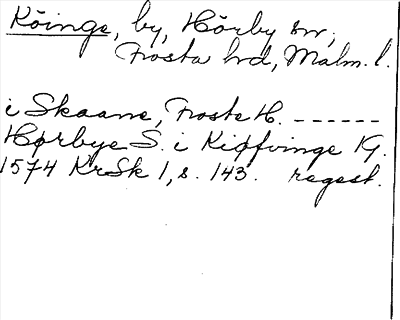 Köinge, by, Hörby sn,
Frosta hd, Malm. l.
i Skaane, Froste H. ------
Hørbye S. i Kiøfvinge IG.
1574 KrSk 1, s. 143. regest.